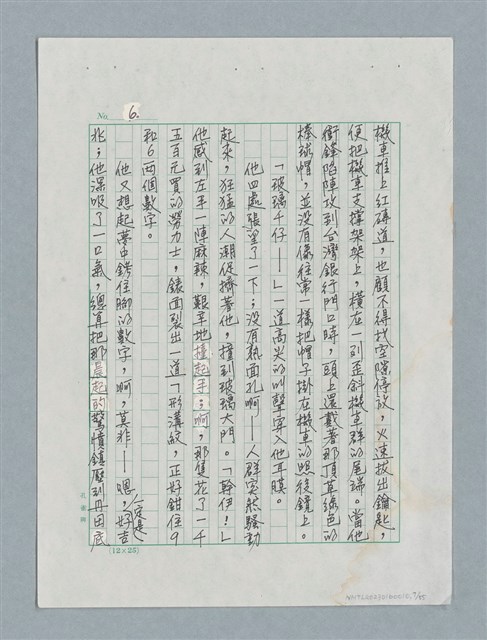 No. 6.
機車推上紅磚道，也顧不得找空隙停放，火速拔出鑰匙，
便把機車支撐架架上，橫在一列歪斜機車群的尾端。當他
衝鋒陷陣攻到台灣銀行門口時，頭上還戴著那頂草綠色的
棒球帽，並没有像往常一樣把帽子掛在機車的照後鏡上。
「玻璃千仔——」一道高尖的叫聲字入他耳膜。
他四處張望了一下；没有熟面孔啊——人群突然騷動
起來，狂猛的人潮促擠著他，撞到玻璃大門。「幹伊！」
他感到左手一陣麻辣，艱辛地擡起手；啊，那隻花了一千
五百元買的勞力士，錶面裂出一道ㄱ形溝紋，正好鉗住9
和6兩個數字。
他又想起夢中銬住腳的數字，啊，莫非——嗯，一定是好吉
兆；他深吸了一口氣，總算把那晨起的驚憤鎮壓到丹田底
孔雀牌
(12×25)